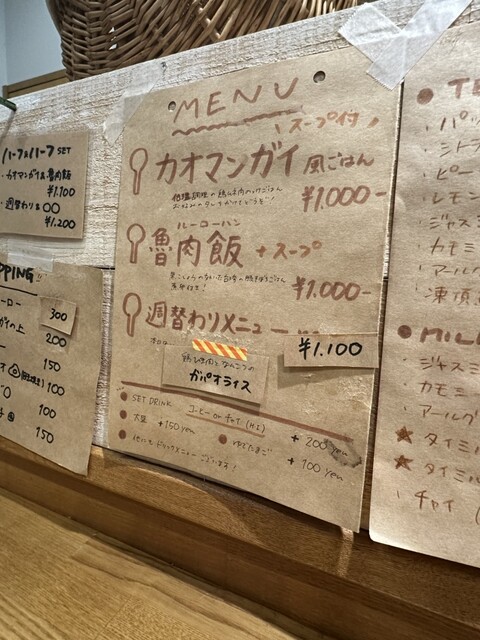 ハーフ&ハーフ SET
・カオマンガイ&魯肉飯
¥1.100
・週替わり&〇〇
¥1.200
PPING!!
ーロー 300
ガイの上 200
150
100
100
150
MENU
スープ付
カオマンガイ 風ごはん
¥1.000-
ルーローハン
魯肉飯 +スープ
¥1.000-
週替わりメニュー
¥1.100
ガパオライス
SET DRINK コーヒー or チャイ (H.I) + 200 yen
大盛 +150 yen
ゆでたまご + 100 yen
他にもドリンクメニューございます!
TE
・パッ
・シトラ
・ピー
・レモン
・ジャス
・カモミ
・アールグ
・凍頂
MIL
・ジャスミ
・カモミ
・アールグ
タイミル
タイミル
・チャイ